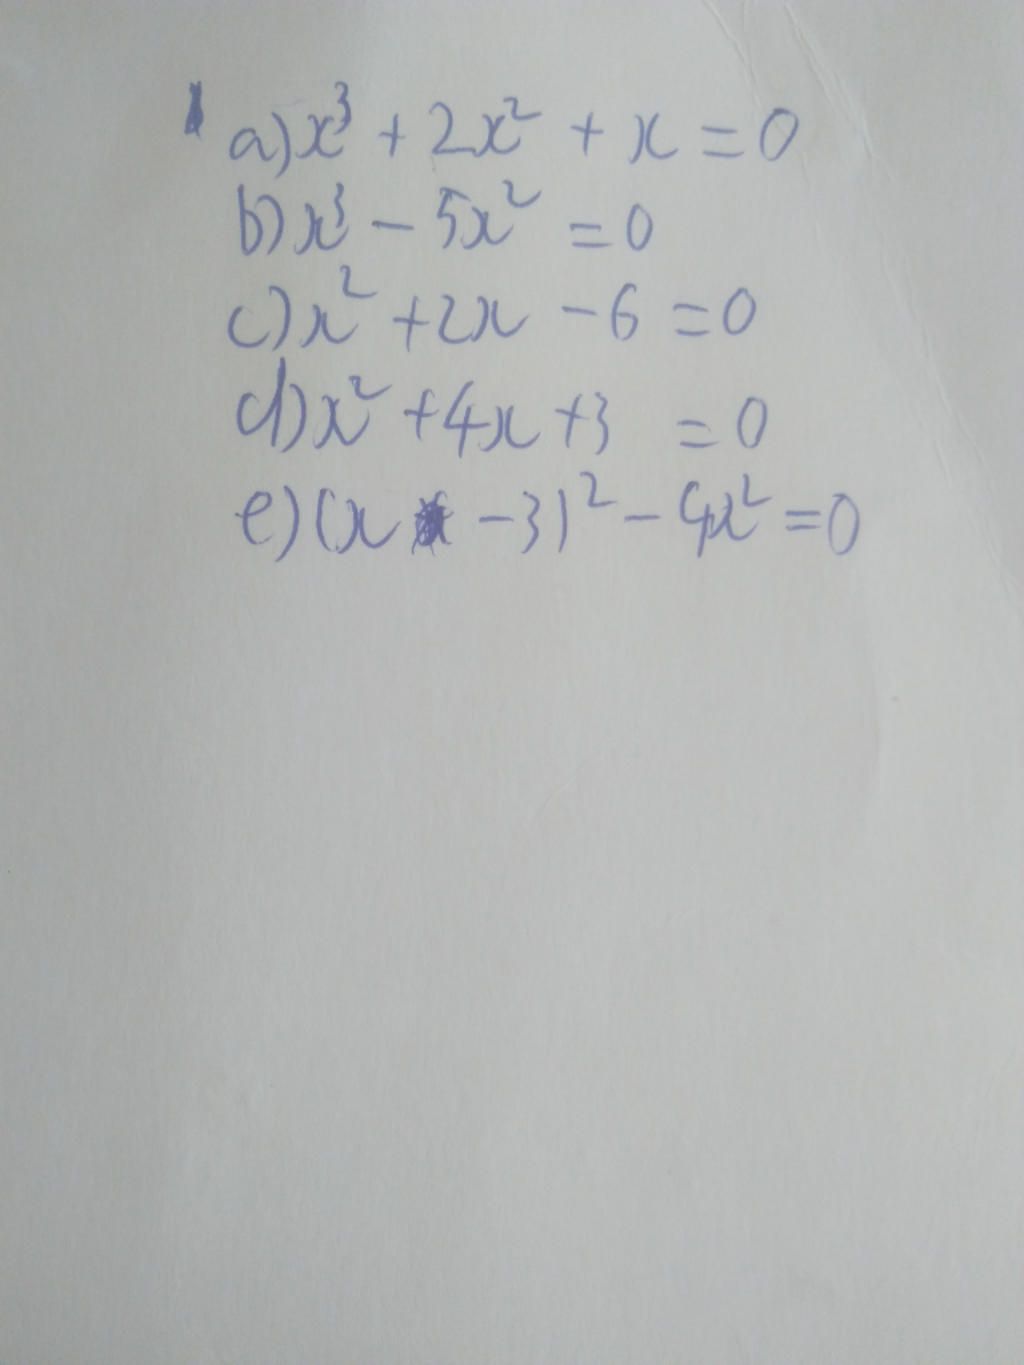 a) x³ + 2x² + x = 0
b) x³ - 5x² = 0
c) x² + 2x - 6 = 0
d) x² + 4x + 3 = 0
e) (x - 3)² - 4x² = 0